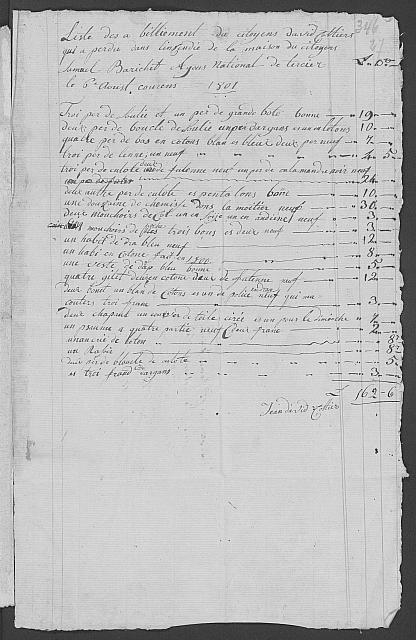 346
47
Liste des a billiement du citoyens david Cottiers
qui a perdu dans l'insendie de la maison du citoyens
Samuel Barichet Agens National de tercier
le 6e Aoust courons 1801
Troi per de soulié et un per de grande bote bonne 19
deux per de boucle de soulié un per dargans et un méloton 10
quatre per de bas en cotons blan es bleux deux per neuf 7
troi per de lenne, un neuf 4 5
troi per de culote deux de futenne neuf un per de calamandre noir neuf
24
deux authe per de culote es pentalons bone 10
une douzaine de chemisse dons la moëtier neuf 30
deux mouchoirs de col un en soie un en indiene neuf 3
mouchoirs de poche trois bons es deux neuf 3
un habit de dra bleu neuf 12
un habi en cotone fait en 1800 8
une veste de drap bleu bonne 5
quatre gilet deux en cotone deux de futenne neuf 12
deux bonet un blan de cotons es un de police neuf qui ma
couters troi frans 3
deux chapaut un couver de toile cirée es un pour le dimenche 7
un psaume a quatre partie neuf Cour frans 2
un ancrié de loton 8
un Rabio 8
deux per de bloucle de culote 5
es troi frans dargans 3
L 162 6
Jean david Cottier